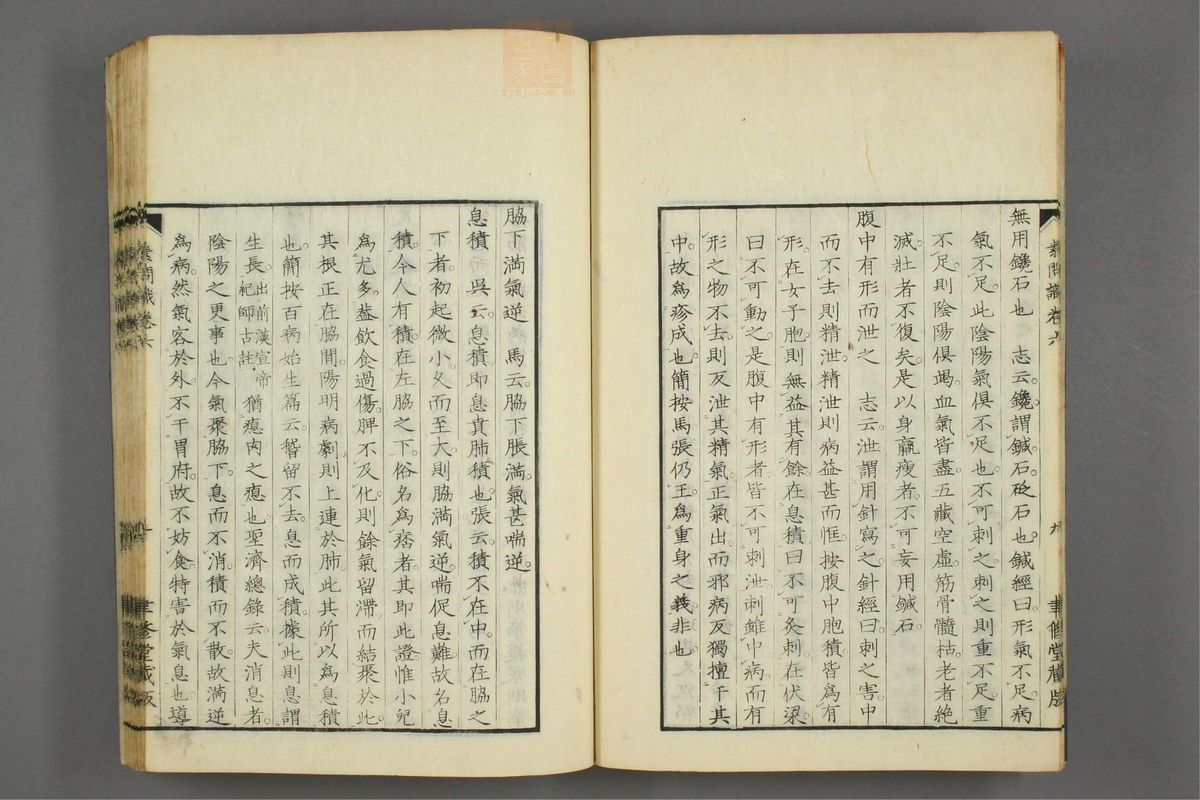 無用鑱石也　志云。鑱謂鍼石。砭石也。鍼經曰。形氣不足。病
氣不足。此陰陽氣俱不足也。不可刺之。刺之則重不足。重
不足。則陰陽俱竭。血氣皆盡。五藏空虛。筋骨髓枯。老者絶
滅。壯者不復矣。是以身羸瘦者。不可妄用鍼石。
腹中有形而泄之　志云。泄謂用針寫之。針經曰。刺之害。中
而不去則精泄。精泄則病益甚而恇。按腹中胞積。皆爲有
形。在女子胞則無益。其有餘在息積。曰不可灸刺。在伏梁。
曰不可動之。是腹中有形者。皆不可刺泄。刺雖中病。而有
形之物不去。則反泄其精氣。正氣出而邪病反獨擅于其
中。故爲疹成也。簡按馬張仍王。爲重身之義。非也。
素問識卷六
九
聿修堂藏版
脇下滿氣逆　馬云。脇下脹滿。氣甚喘逆。
息積　吳云。息積。即息賁。肺積也。張云。積不在中。而在脇之
下者。初起微小。久而至大。則脇滿氣逆。喘促息難。故名息
積。今人有積在左脇之下。俗名爲痞者。其即此證。惟小兒
爲尤多。葢飲食過傷。脾不及化。則餘氣留滯。而結聚於此。
其根正在脇間。陽明病劇。則上連於肺。此其所以爲息積
也。簡按百病始生篇云。稽留不去。息而成積。據此則息謂
生長。出前漢宣帝紀師古註。猶瘜肉之瘜也。聖濟總錄云。夫消息者。
陰陽之更事也。今氣聚脇下。息而不消。積而不散。故滿逆
爲病。然氣客於外。不干胃府。故不妨食。特害於氣息也。導
素問識卷六
十
聿修堂藏版
zysj.com.cn